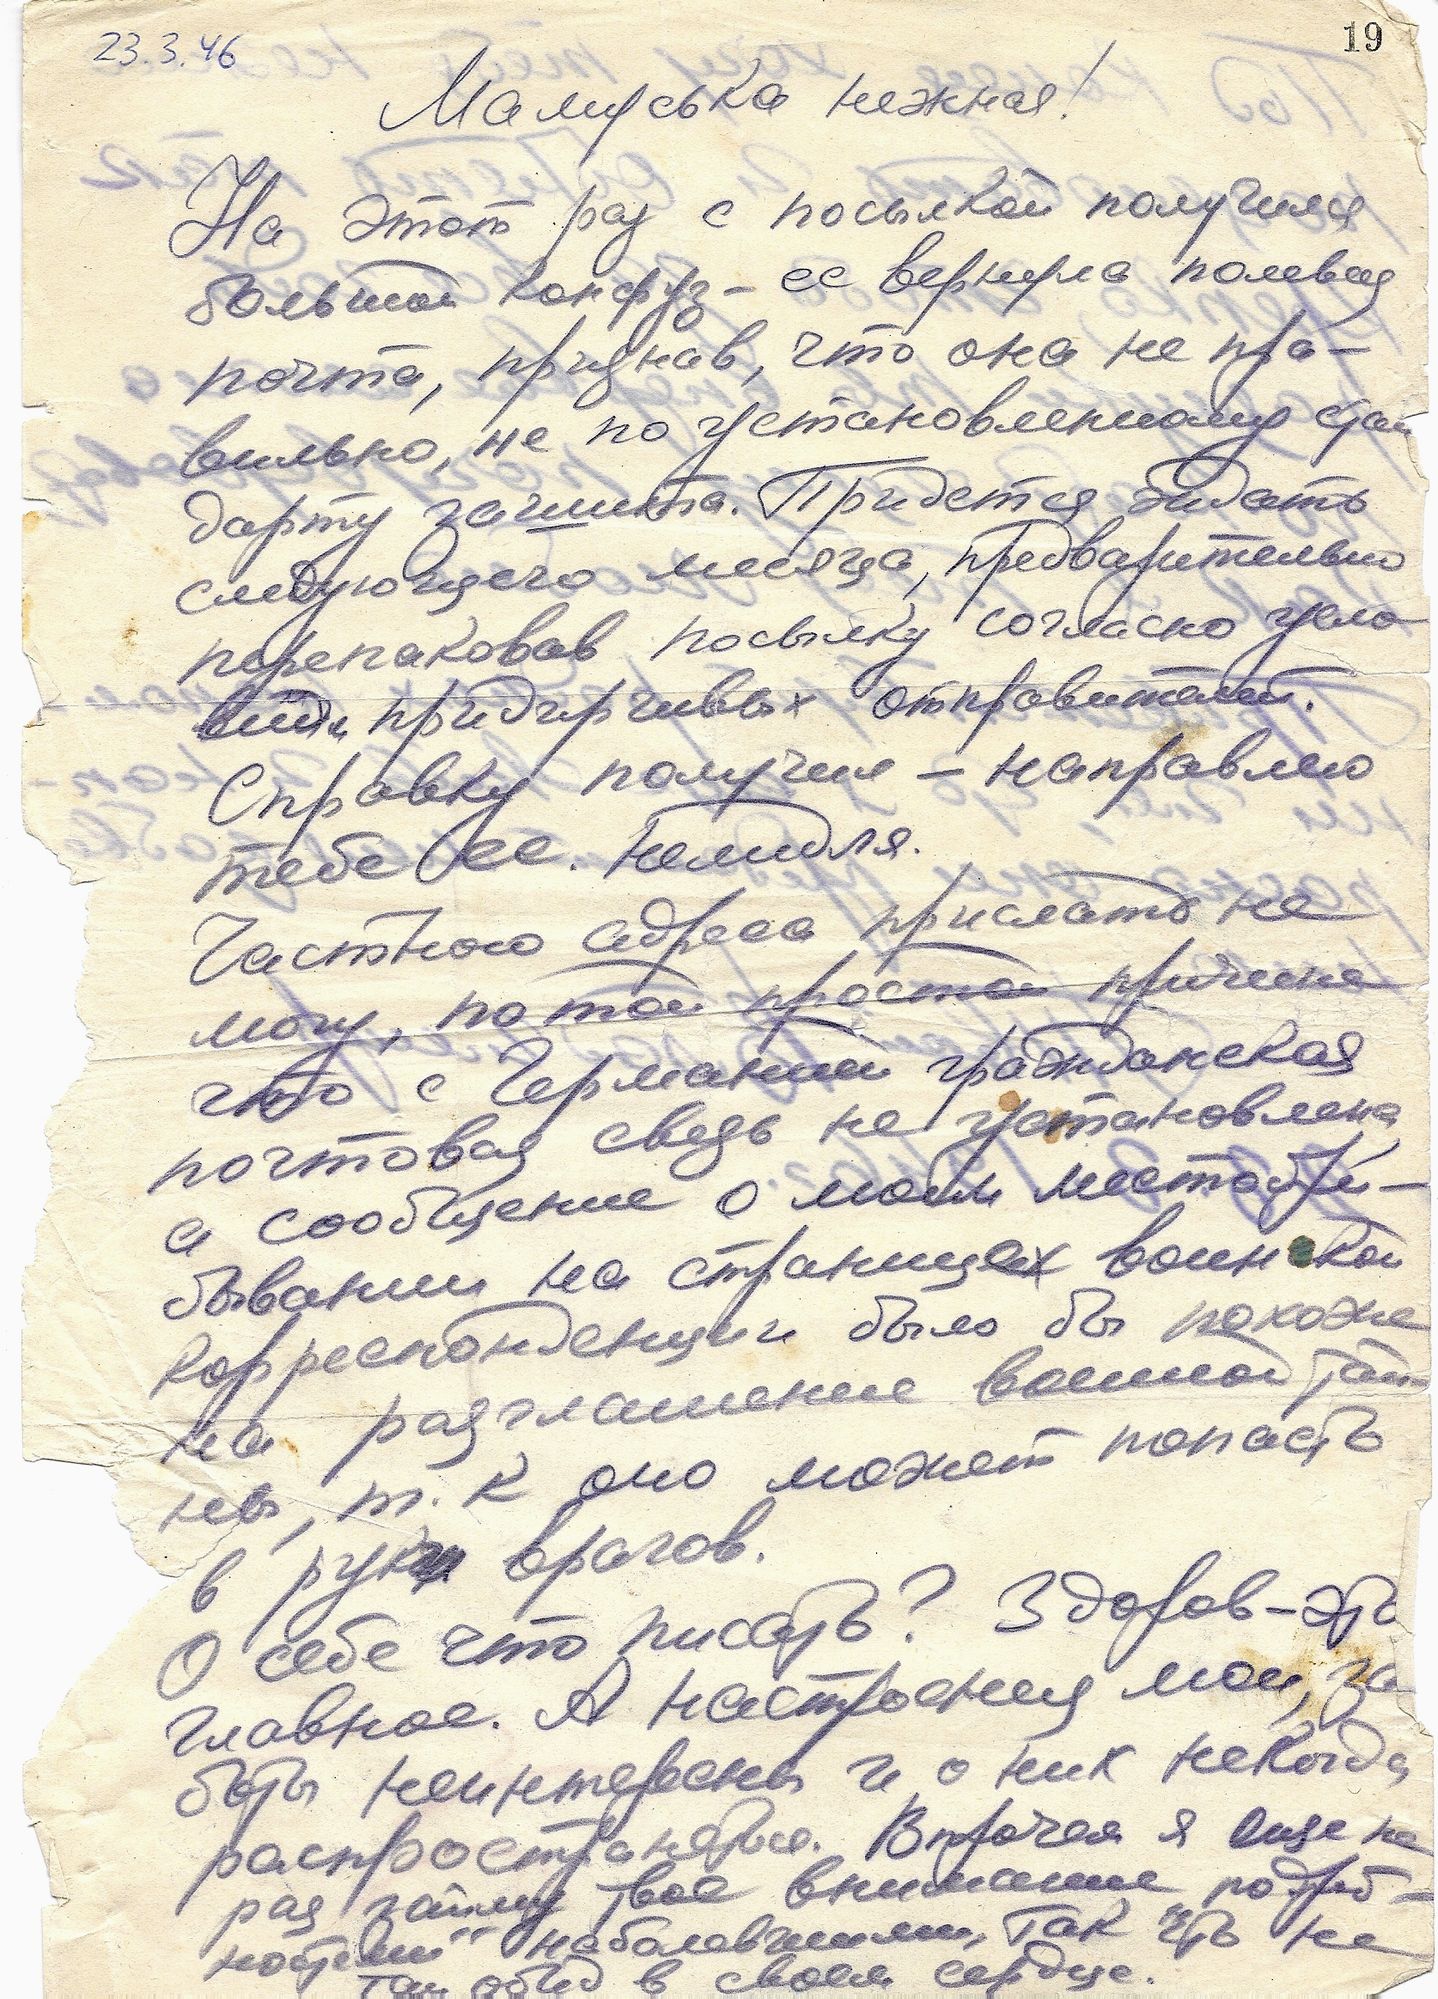 23.3.46
19
Мамуська нежная!
На этот раз с посылкой получился
большой конфуз – ее вернула полевая
почта, признав, что она не пра-
вильно, не по установленному стан
дарту зашита. Придется ждать
следующего месяца, предварительно
перепаковав посылку согласно усло
вий придирчивых отправителей.
Справку получил – направлю
тебе ее. немедля.
Частного адреса прислать не
могу, по той простой причине
что с Германией гражданская
почтовая связь не установлена
а сообщение о моем местопре-
бывании на страницах воинской
корреспонденции было бы похоже
на разглашение военной тай-
ны, т. к оно может попасть
в руки врагов.
О себе что писать? Здоров – это
главное. А настроения мои, за
боты неинтересны и о них некогда
распространяться. Впрочем я еще не
раз займу твое внимание подроб-
ностями наболевшими, так что не
таи обид в своем сердце.